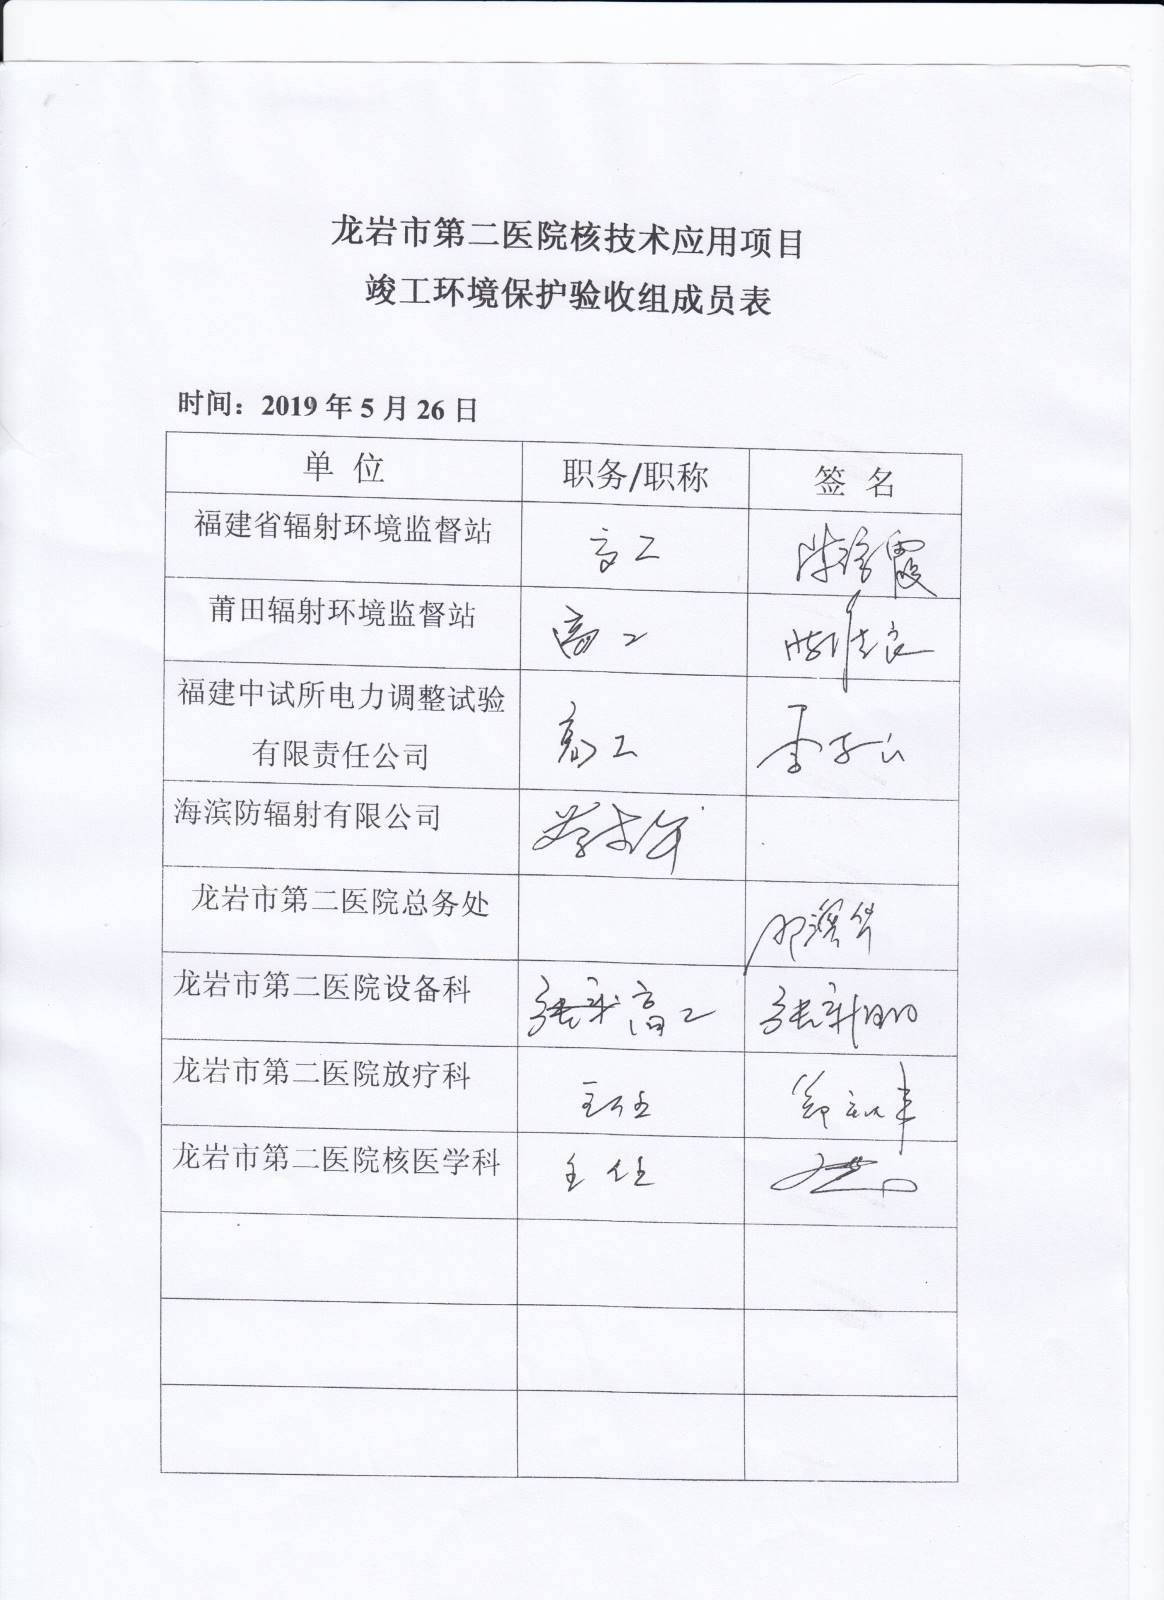 龙岩市第二医院核技术应用项目
竣工环境保护验收组成员表
时间：2019 年 5 月 26 日
单 位 职务/职称 签 名
福建省辐射环境监督站 高工
莆田辐射环境监督站 高工
福建中试所电力调整试验
有限责任公司 高工
海滨防辐射有限公司
龙岩市第二医院总务处
龙岩市第二医院设备科 高工 张新明
龙岩市第二医院放疗科 主任
龙岩市第二医院核医学科 主任